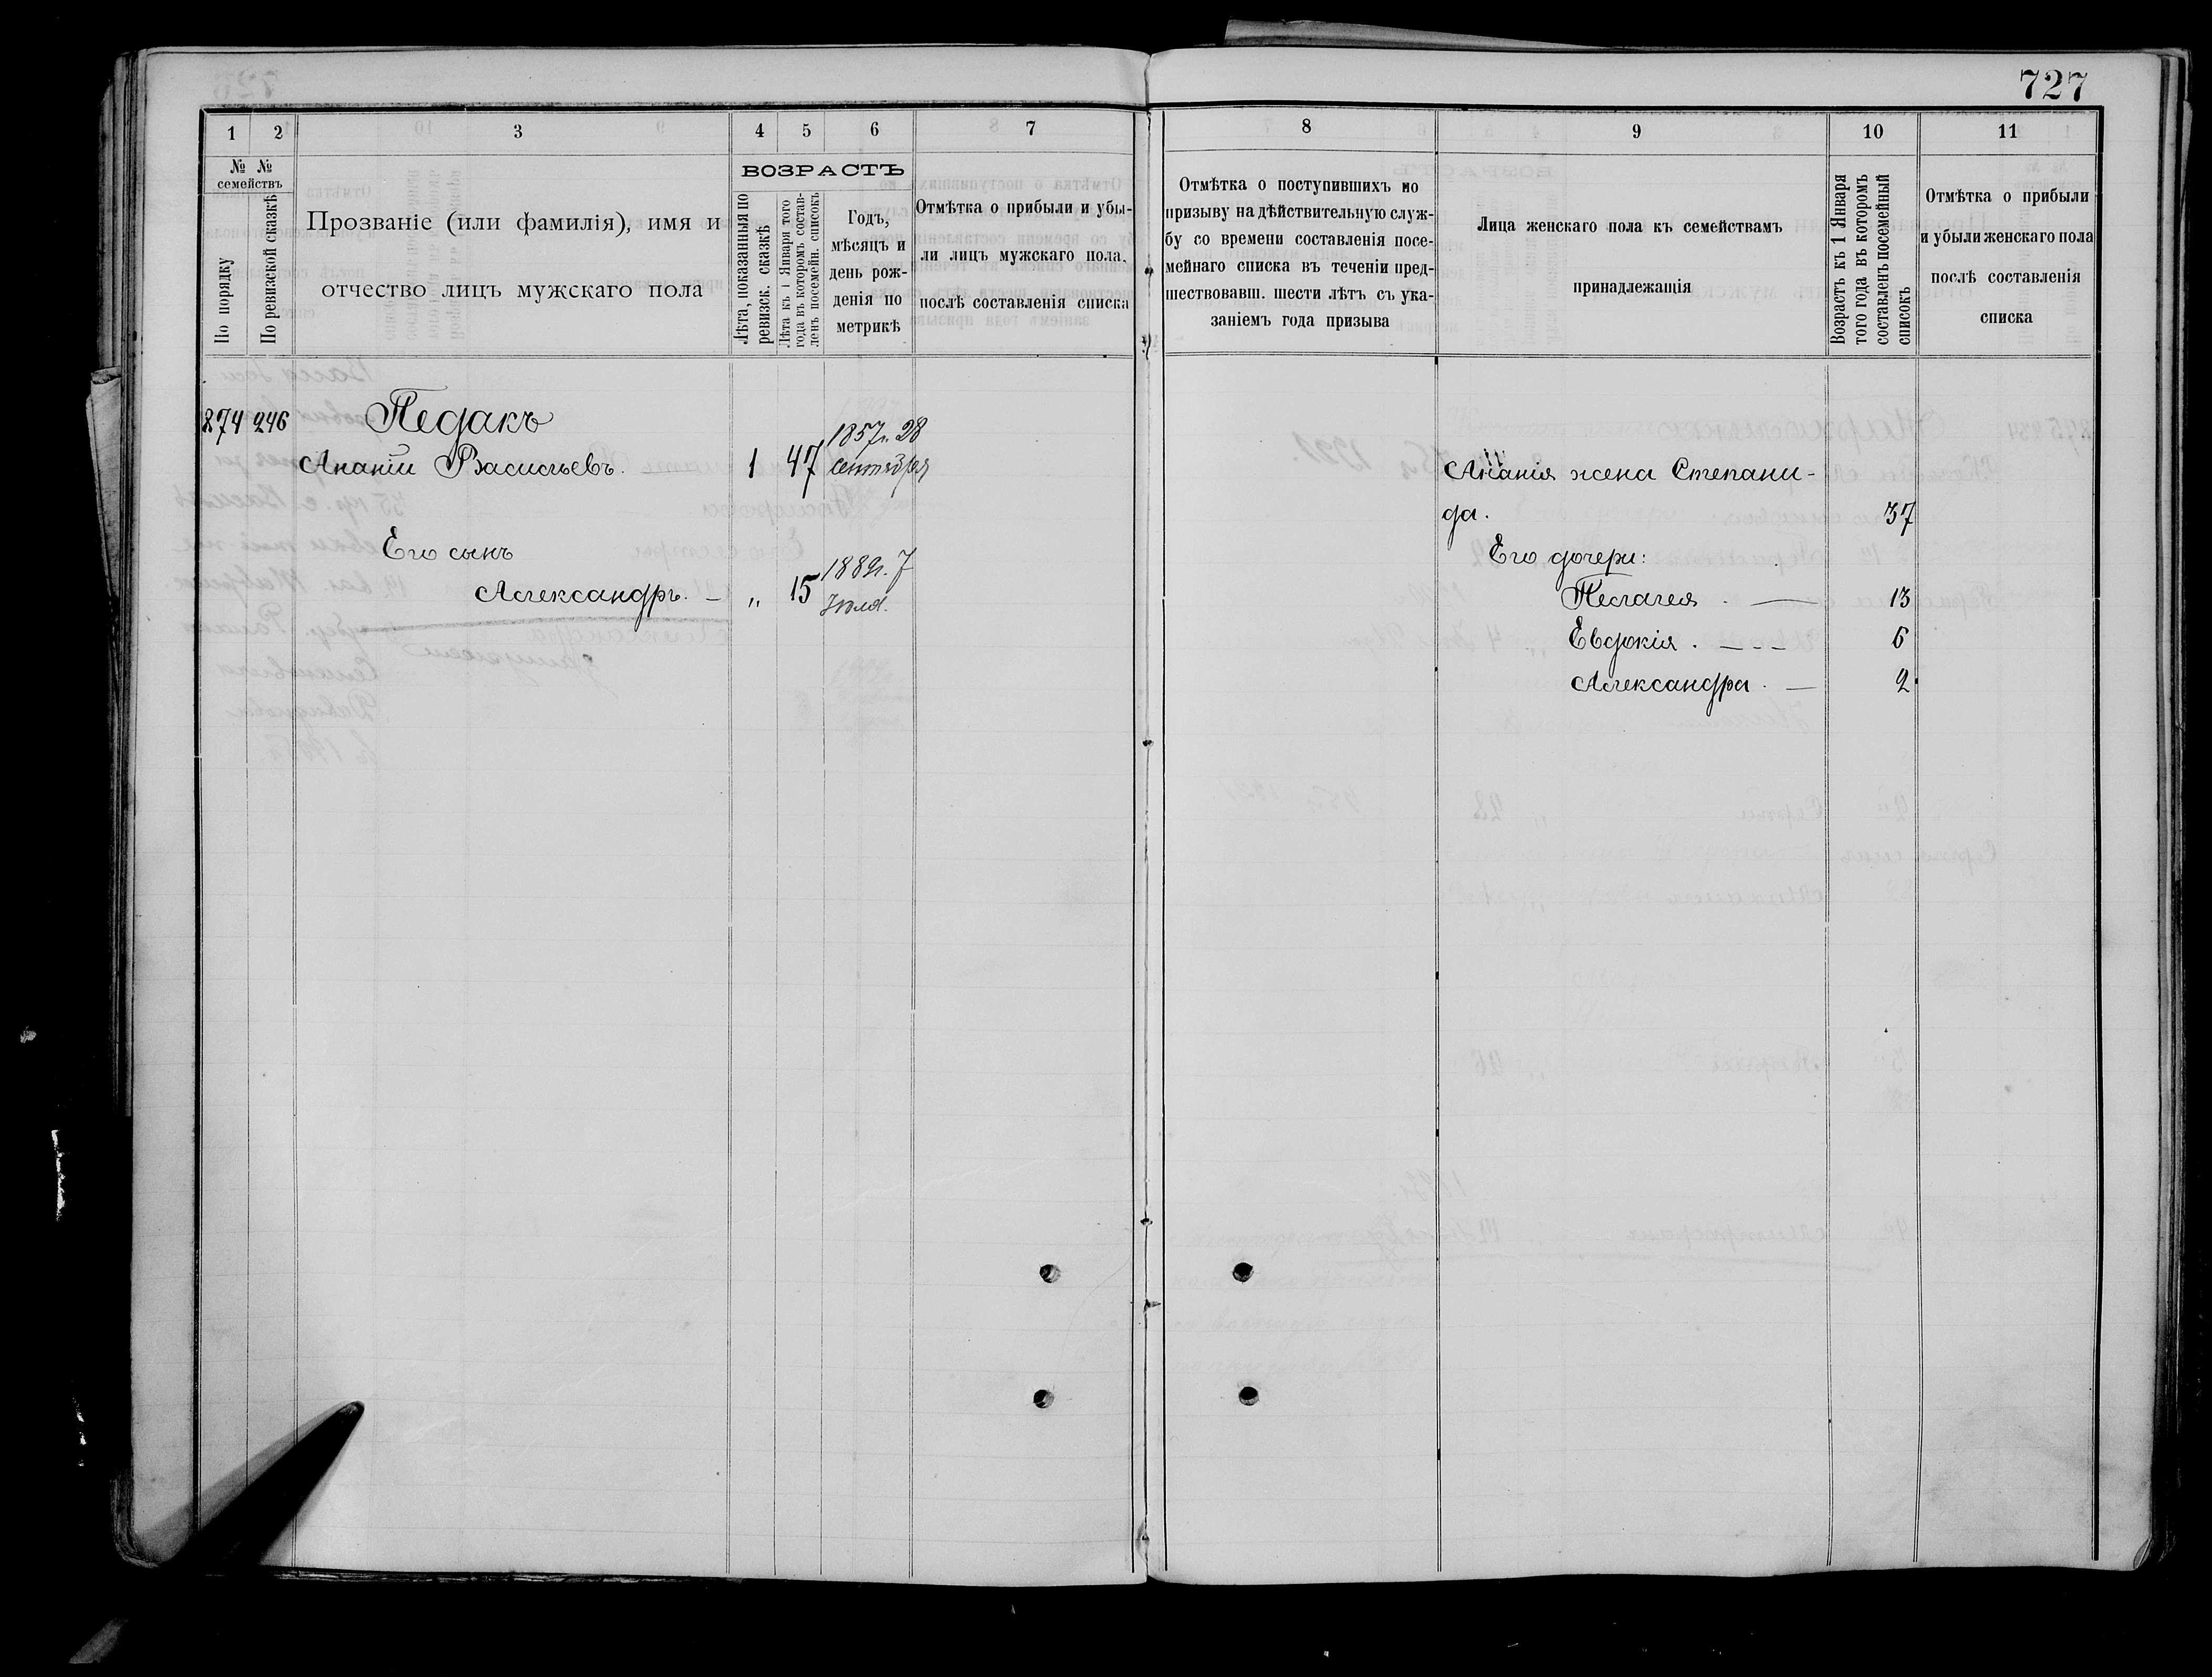 727
1
2
3
4
5
6
7
№ №
семействъ
По порядку
По ревизской сказкѣ
Прозваніе (или фамилія), имя и
отчество лицъ мужскаго пола
ВОЗРАСТЪ
Лѣта, показанныя по
ревизск. сказкѣ
Лѣта къ 1 Января того
года въ которомъ состав-
ленъ посемейн. списокъ
Годъ,
мѣсяцъ и
день рож-
денія по
метрикѣ
Отмѣтка о прибыли и убы-
ли лицъ мужскаго пола.
послѣ составленія списка
874 246 Педакъ
1857г. 28
Ананій Васильевъ. 1 47 сентября
Его сынъ
1889г. 7
Александръ. — „ 15 Іюля.
8
9
10
11
Отмѣтка о поступившихъ по
призыву на дѣйствительную служ-
бу со времени составленія посе-
мейнаго списка въ теченіи пред-
шествовавш. шести лѣтъ съ ука-
заніемъ года призыва
Лица женскаго пола къ семействамъ
принадлежащія
Возрастъ къ 1 Января
того года въ которомъ
составленъ посемейный
списокъ
Отмѣтка о прибыли
и убыли женскаго пола
послѣ составленія
списка
Ананія жена Степани-
да. 37
Его дочери:
Пелагея . — 13
Евдокія . — – – 6
Александра . — 2